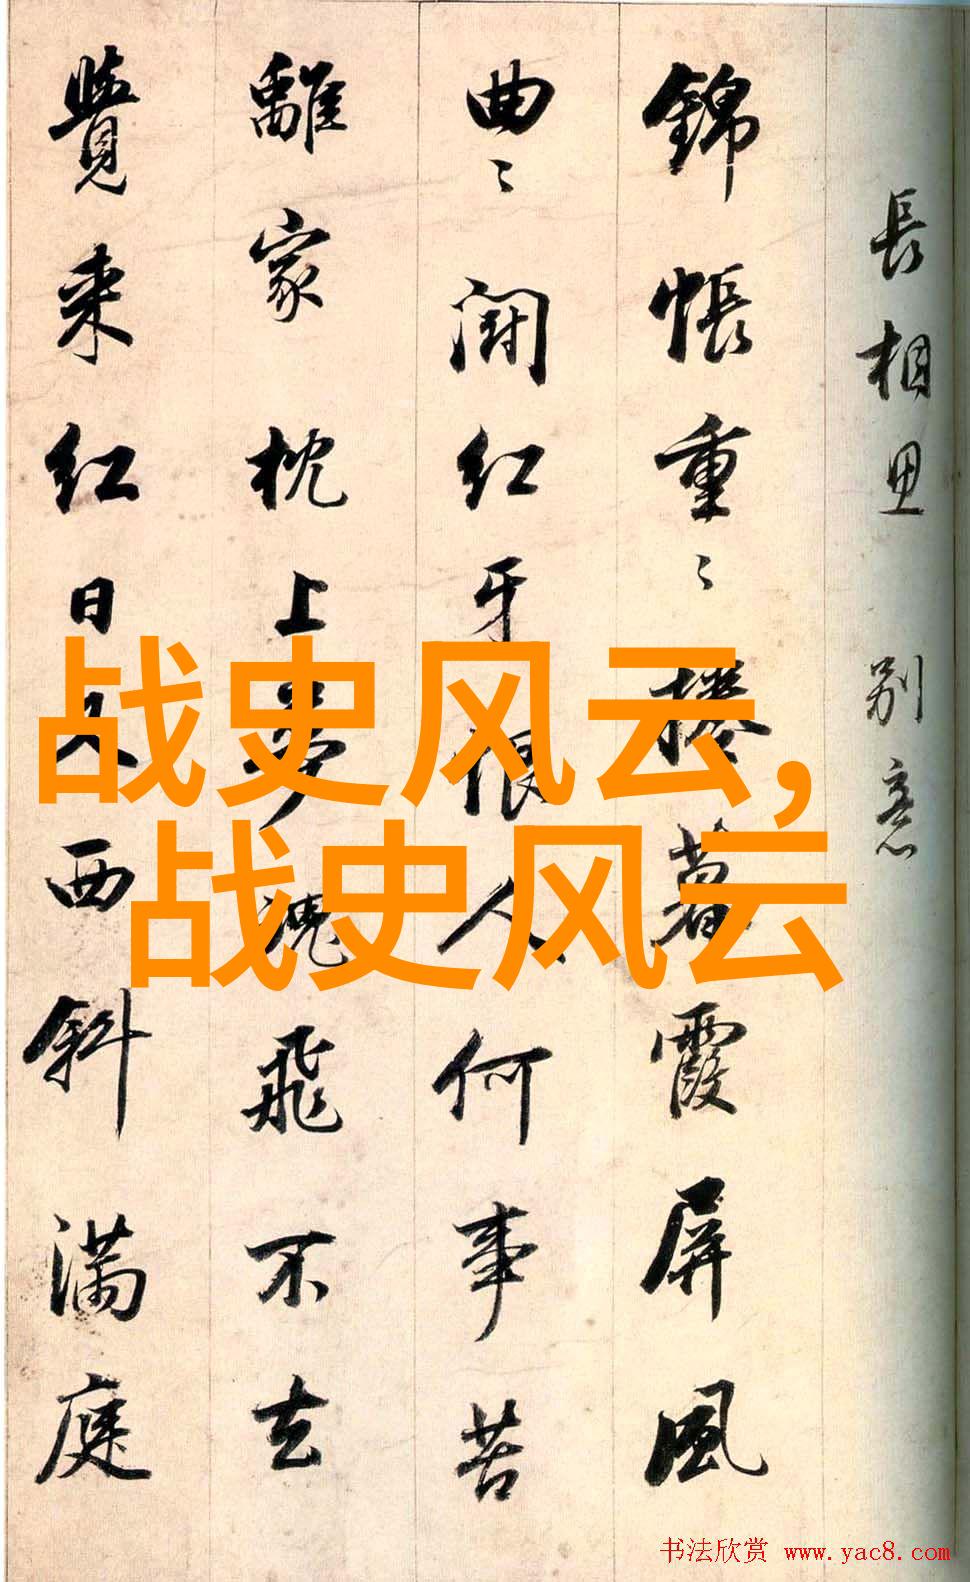 長相思 別意
錦帳重〻捲暮霞屏風
曲〻鬪紅牙恨人何事苦
離家枕上夢魂飛不去
覺来紅日又西斜滿庭
战史风云,
战史风云
书法欣赏 www.yac8.com